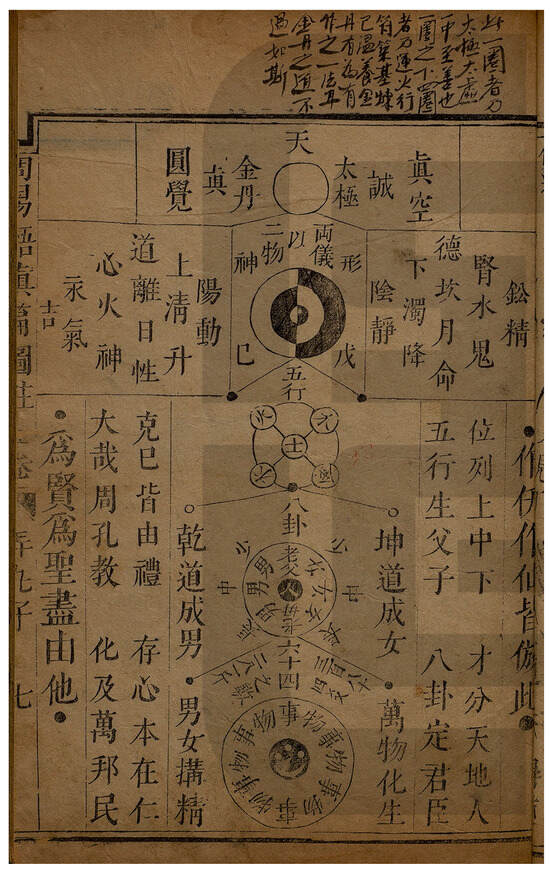 此一圈者乃
太極太虛
中至善也
一圈之下四圈
者乃運火行
符築基煉
己溫養金
丹有為有
作之一法耳
金丹之道不
過如斯
天
真空
誠
太極
金丹
真
圓覺
鉛精
腎水鬼
德坎月命
下濁降
陰靜
形
兩儀
以
二物
神
戊
己
陽動
上清升
道離日性
心火神
汞氣
吉
五行
土
火
作伊作仙皆倣此
位列上中下 才分天地人
五行生父子 八卦定君臣
坤道成女 萬物化生
八卦
老父
老母
男男男
女女女
六十四
事物事物事物事物
乾道成男 男女搆精
克己皆由禮 存心本在仁
大哉周孔教 化及萬邦民
為賢為聖盡由他
周易悟真篇圖註
七